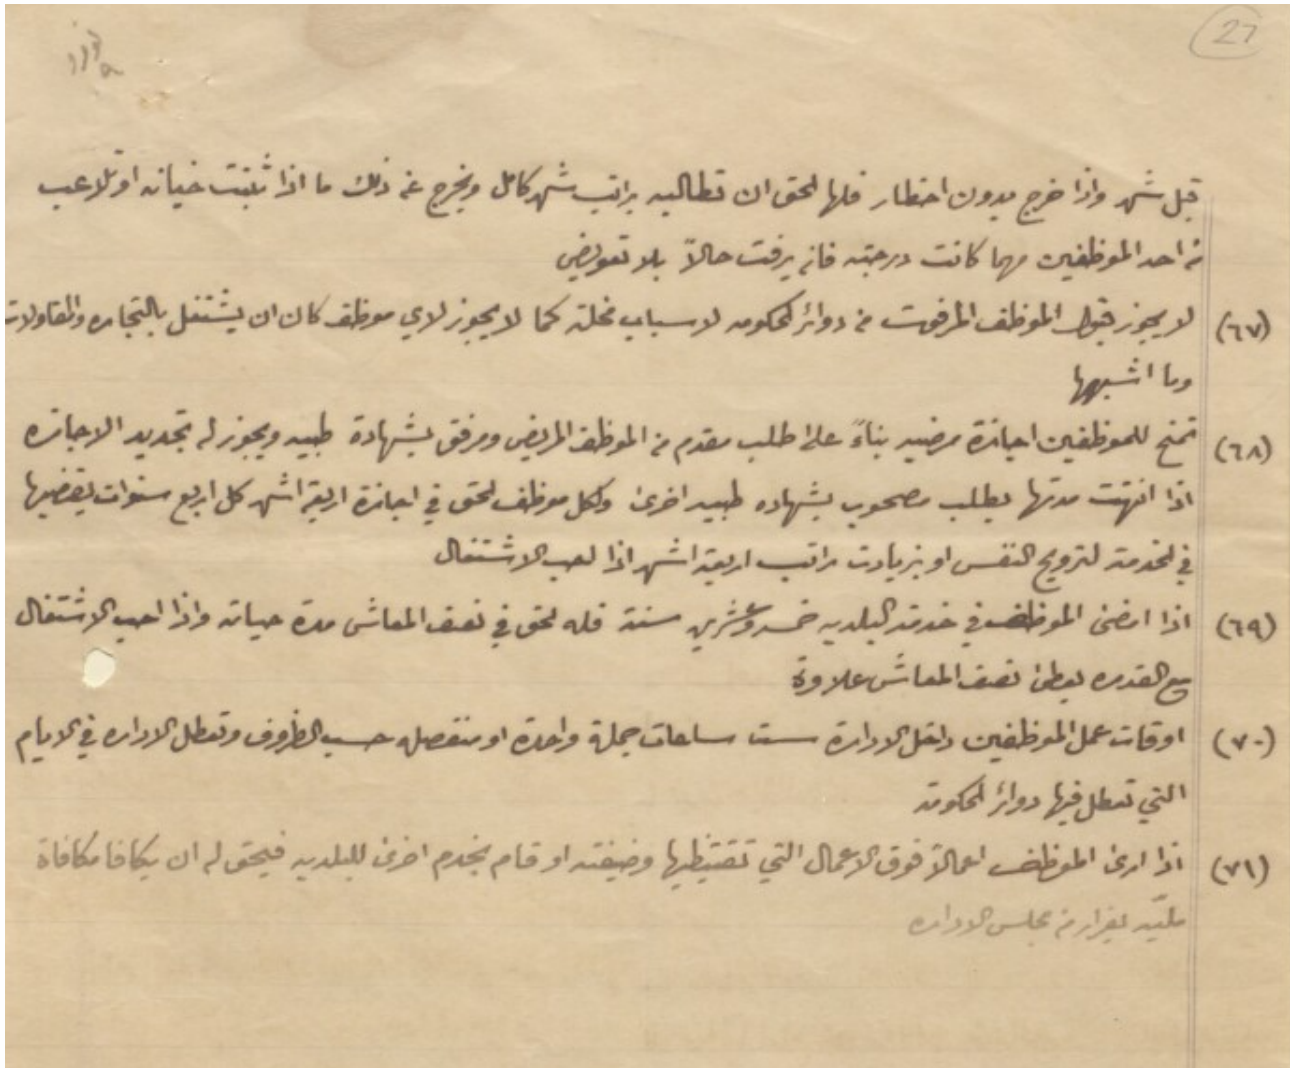 27
قبل شهر واذا خرج بدون اخطار فلها الحق ان تطالبه براتب شهر كامل ويخرج عن ذلك ما اذا ثبتت خيانه او تلاعب
من احد الموظفين مهما كانت درجته فانه يرفت حالاً بلا تعويض
(٦٧) لا يجوز قبول الموظف المرفوت من دوائر الحكومه لاسباب مخلة كما لا يجوز لاي موظف كان ان يشتغل بالتجاره والمقاولات
وما اشبهها
(٦٨) تمنح للموظفين اجازة مرضيه بناءً على طلب مقدم من الموظف المريض ومرفق بشهادة طبيه ويجوز له تجديد الاجازه
اذا انتهت مدتها بطلب مصحوب بشهاده طبيه اخرى ولكل موظف الحق في اجازة اربعة اشهر كل اربع سنوات يقضيها
في الخدمة لترويح النفس او بزيادت راتب اربعة اشهر اذا احب الاشتغال
(٦٩) اذا امضى الموظف في خدمة البلديه خمسه وعشرين سنة فله الحق في نصف المعاش مدة حياته واذا احب الاشتغال
مع القدره يعطى نصف المعاش علاوة
(٧٠) اوقات عمل الموظفين داخل الادارة ست ساعات جملة واحدة او منفصله حسب الظروف وتعطل الاداره في الايام
التي تعطل فيها دوائر الحكومة
(٧١) اذا ادى الموظف اعمالاً فوق الاعمال التي تقتظيها وضيفته او قام بخدم اخرى للبلديه فيحق له ان يكافا مكافاة
ماليّه بقرار من مجلس الاداره